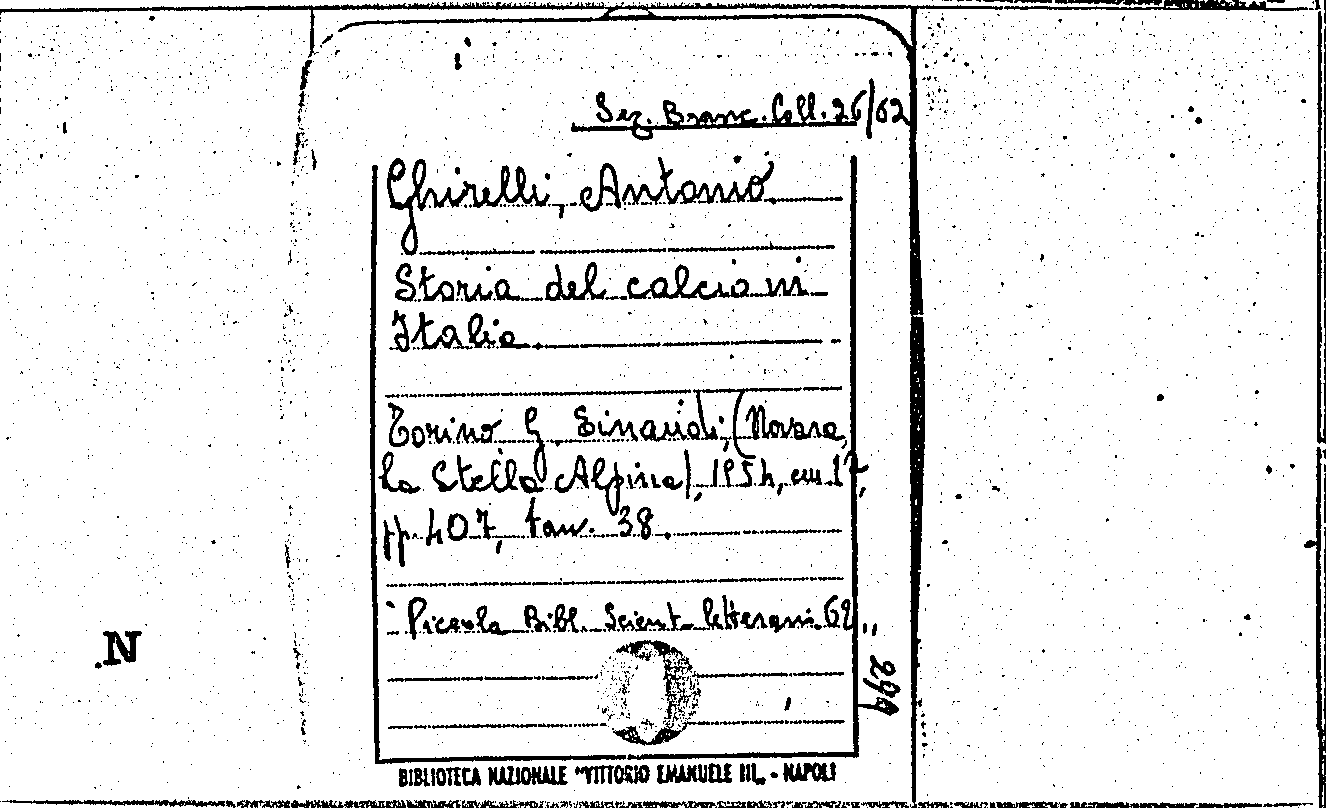 Sez. Branc. Coll. 26/62
Ghirelli, Antonio
Storia del calcio in
Italia.
Torino G. Einaudi, (Novara,
la Stella Alpina), 1954, cm 17,
pp. 407, tav. 38.
"Piccola Bibl. Scient. letteraria 62"
299
N.
BIBLIOTECA NAZIONALE "VITTORIO EMANUELE III„ - NAPOLI